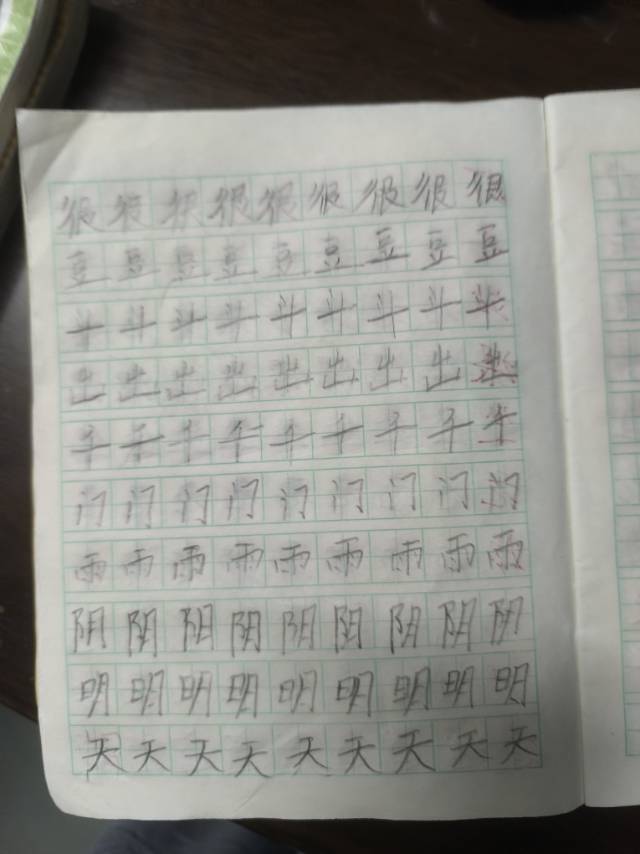 很很很很很很很很很
豆豆豆豆豆豆豆豆豆
斗斗斗斗斗斗斗斗斗
出出出出出出出出出
午午午午午午午午午
门门门门门门门门门
雨雨雨雨雨雨雨雨雨
阴阴阳阴阴阳阴阴阴
明明明明明明明明明
天天天天天天天天天